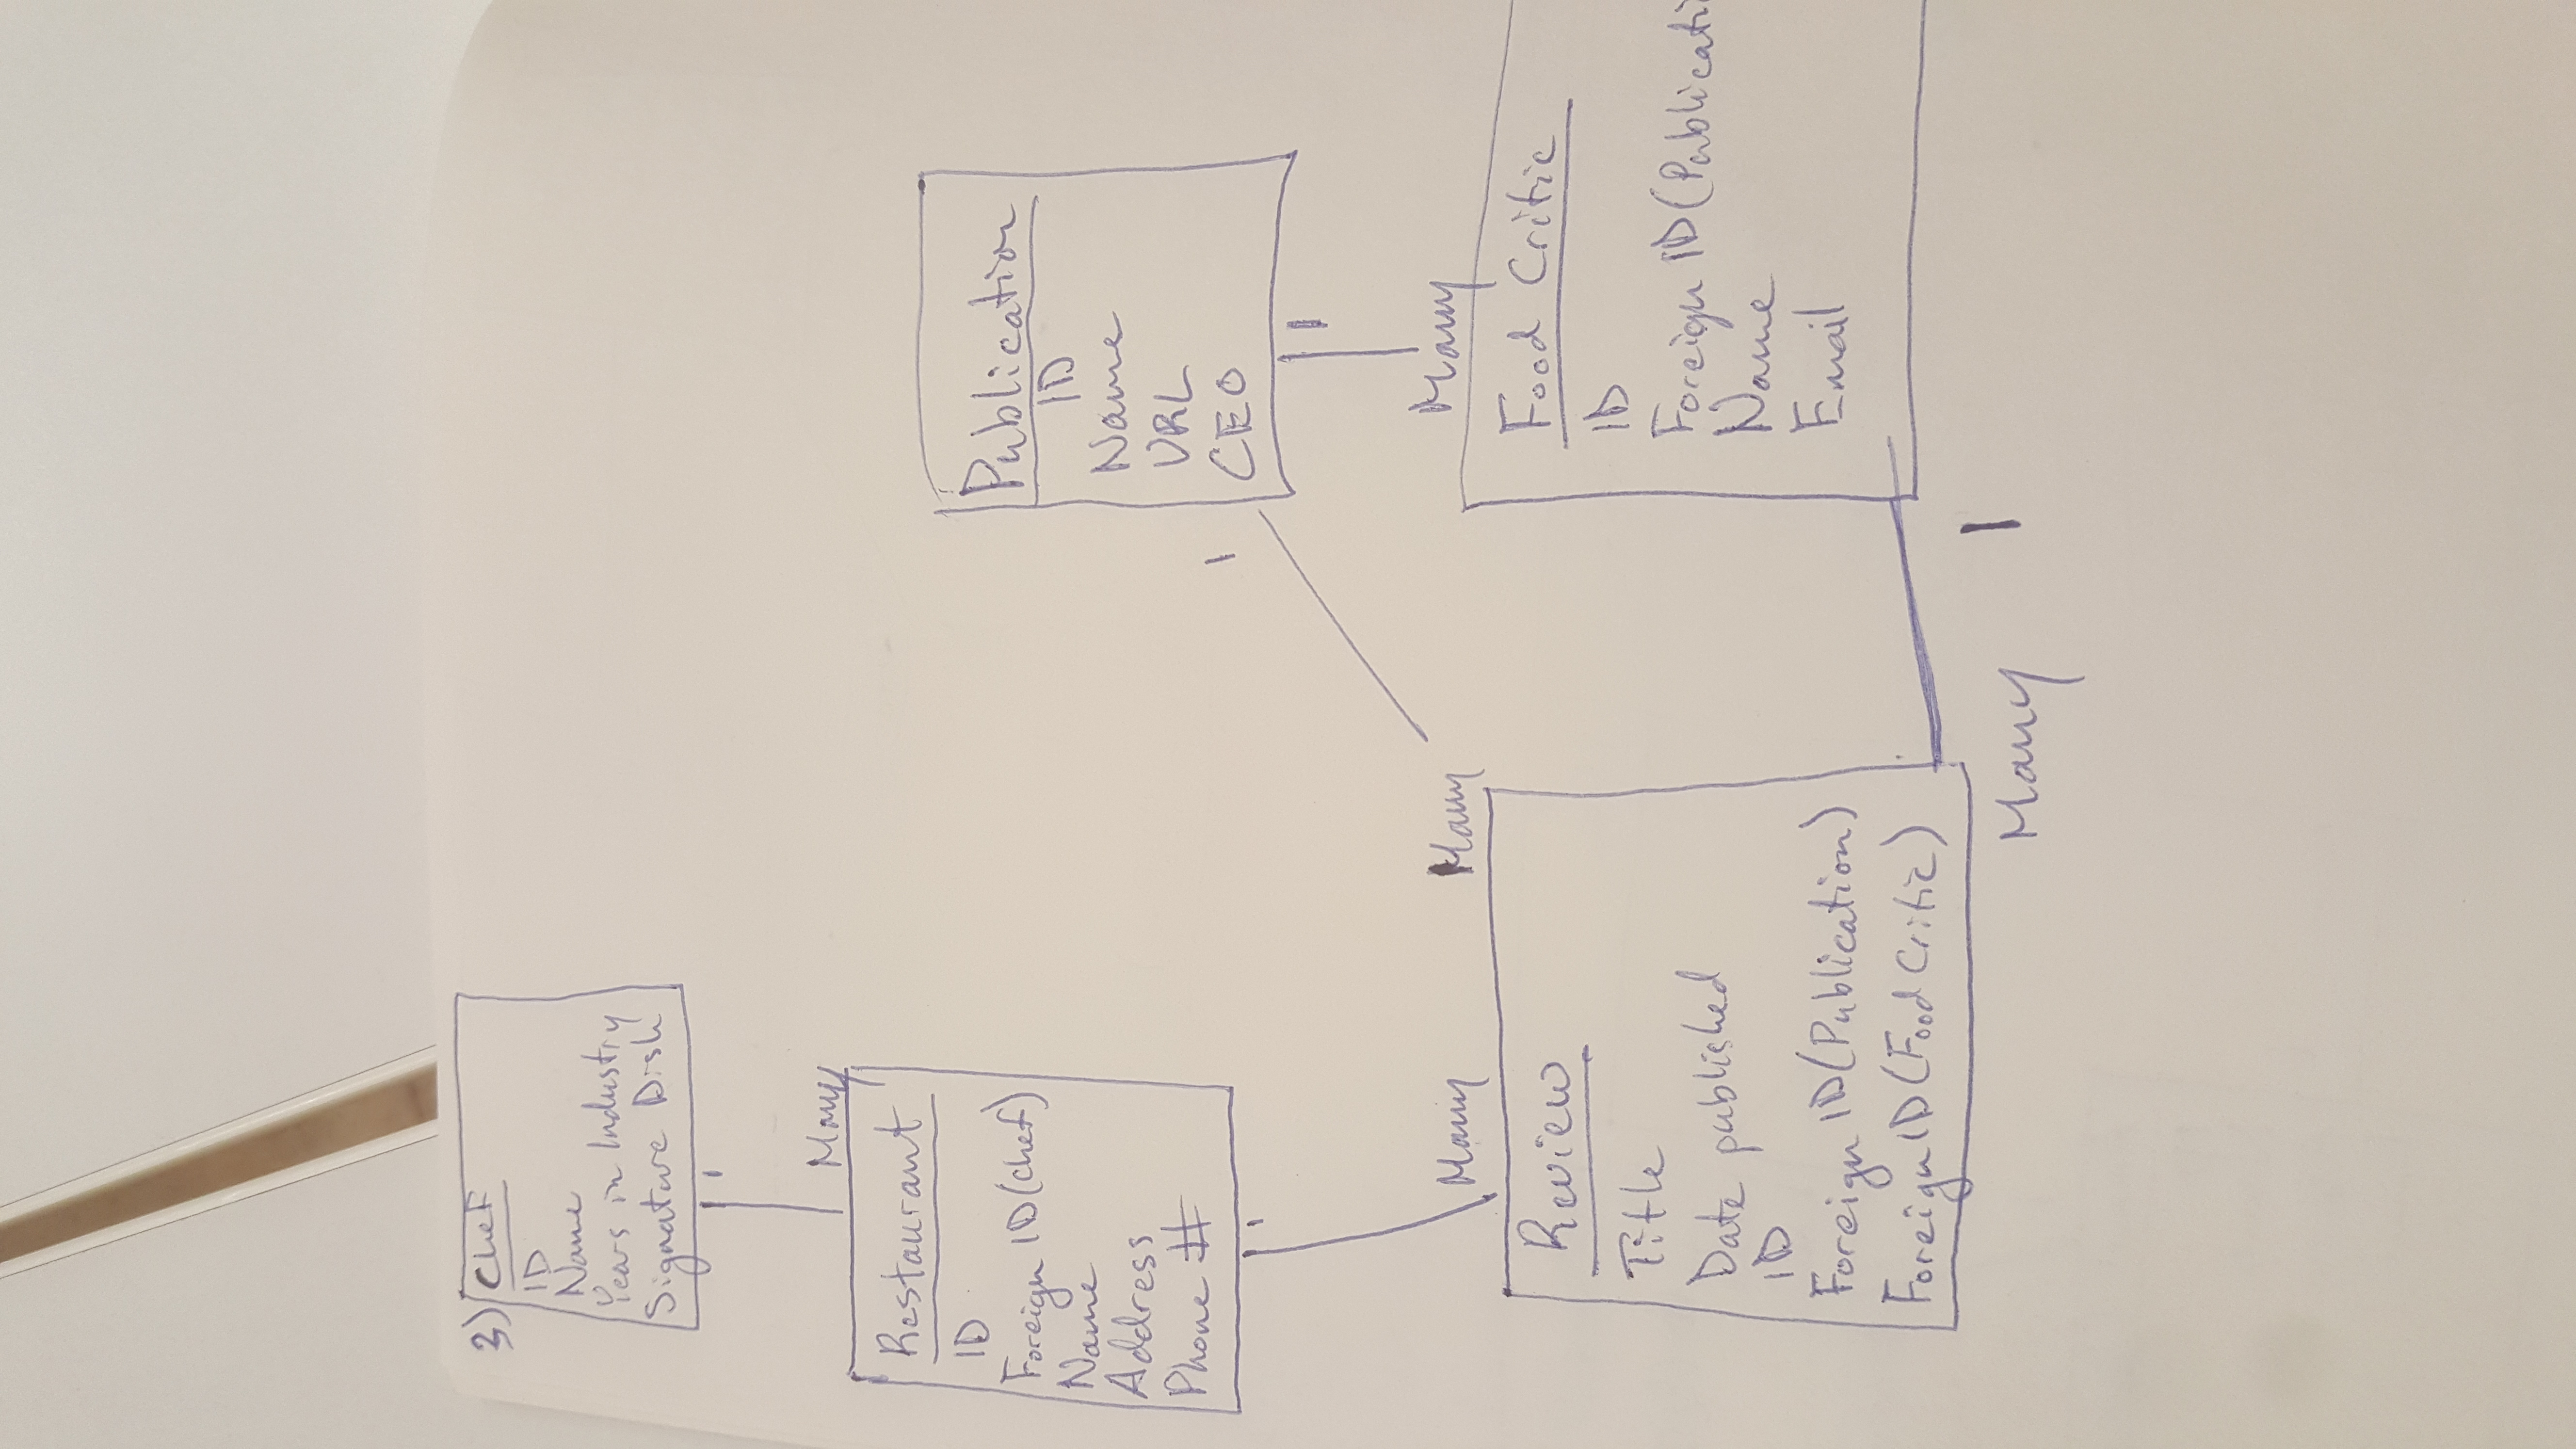 3) Chef
ID
Name
Years in Industry
Signature Dish
1
Many
Restaurant
ID
Foreign ID(Chef)
Name
Address
Phone #
1
Many
Publication
ID
Name
URL
CEO
1
Many
1
Many
Review
Title
Date published
ID
Foreign ID(Publication)
Foreign ID(Food Critic)
Many
1
Food Critic
ID
Foreign ID(Publicati
Name
Email